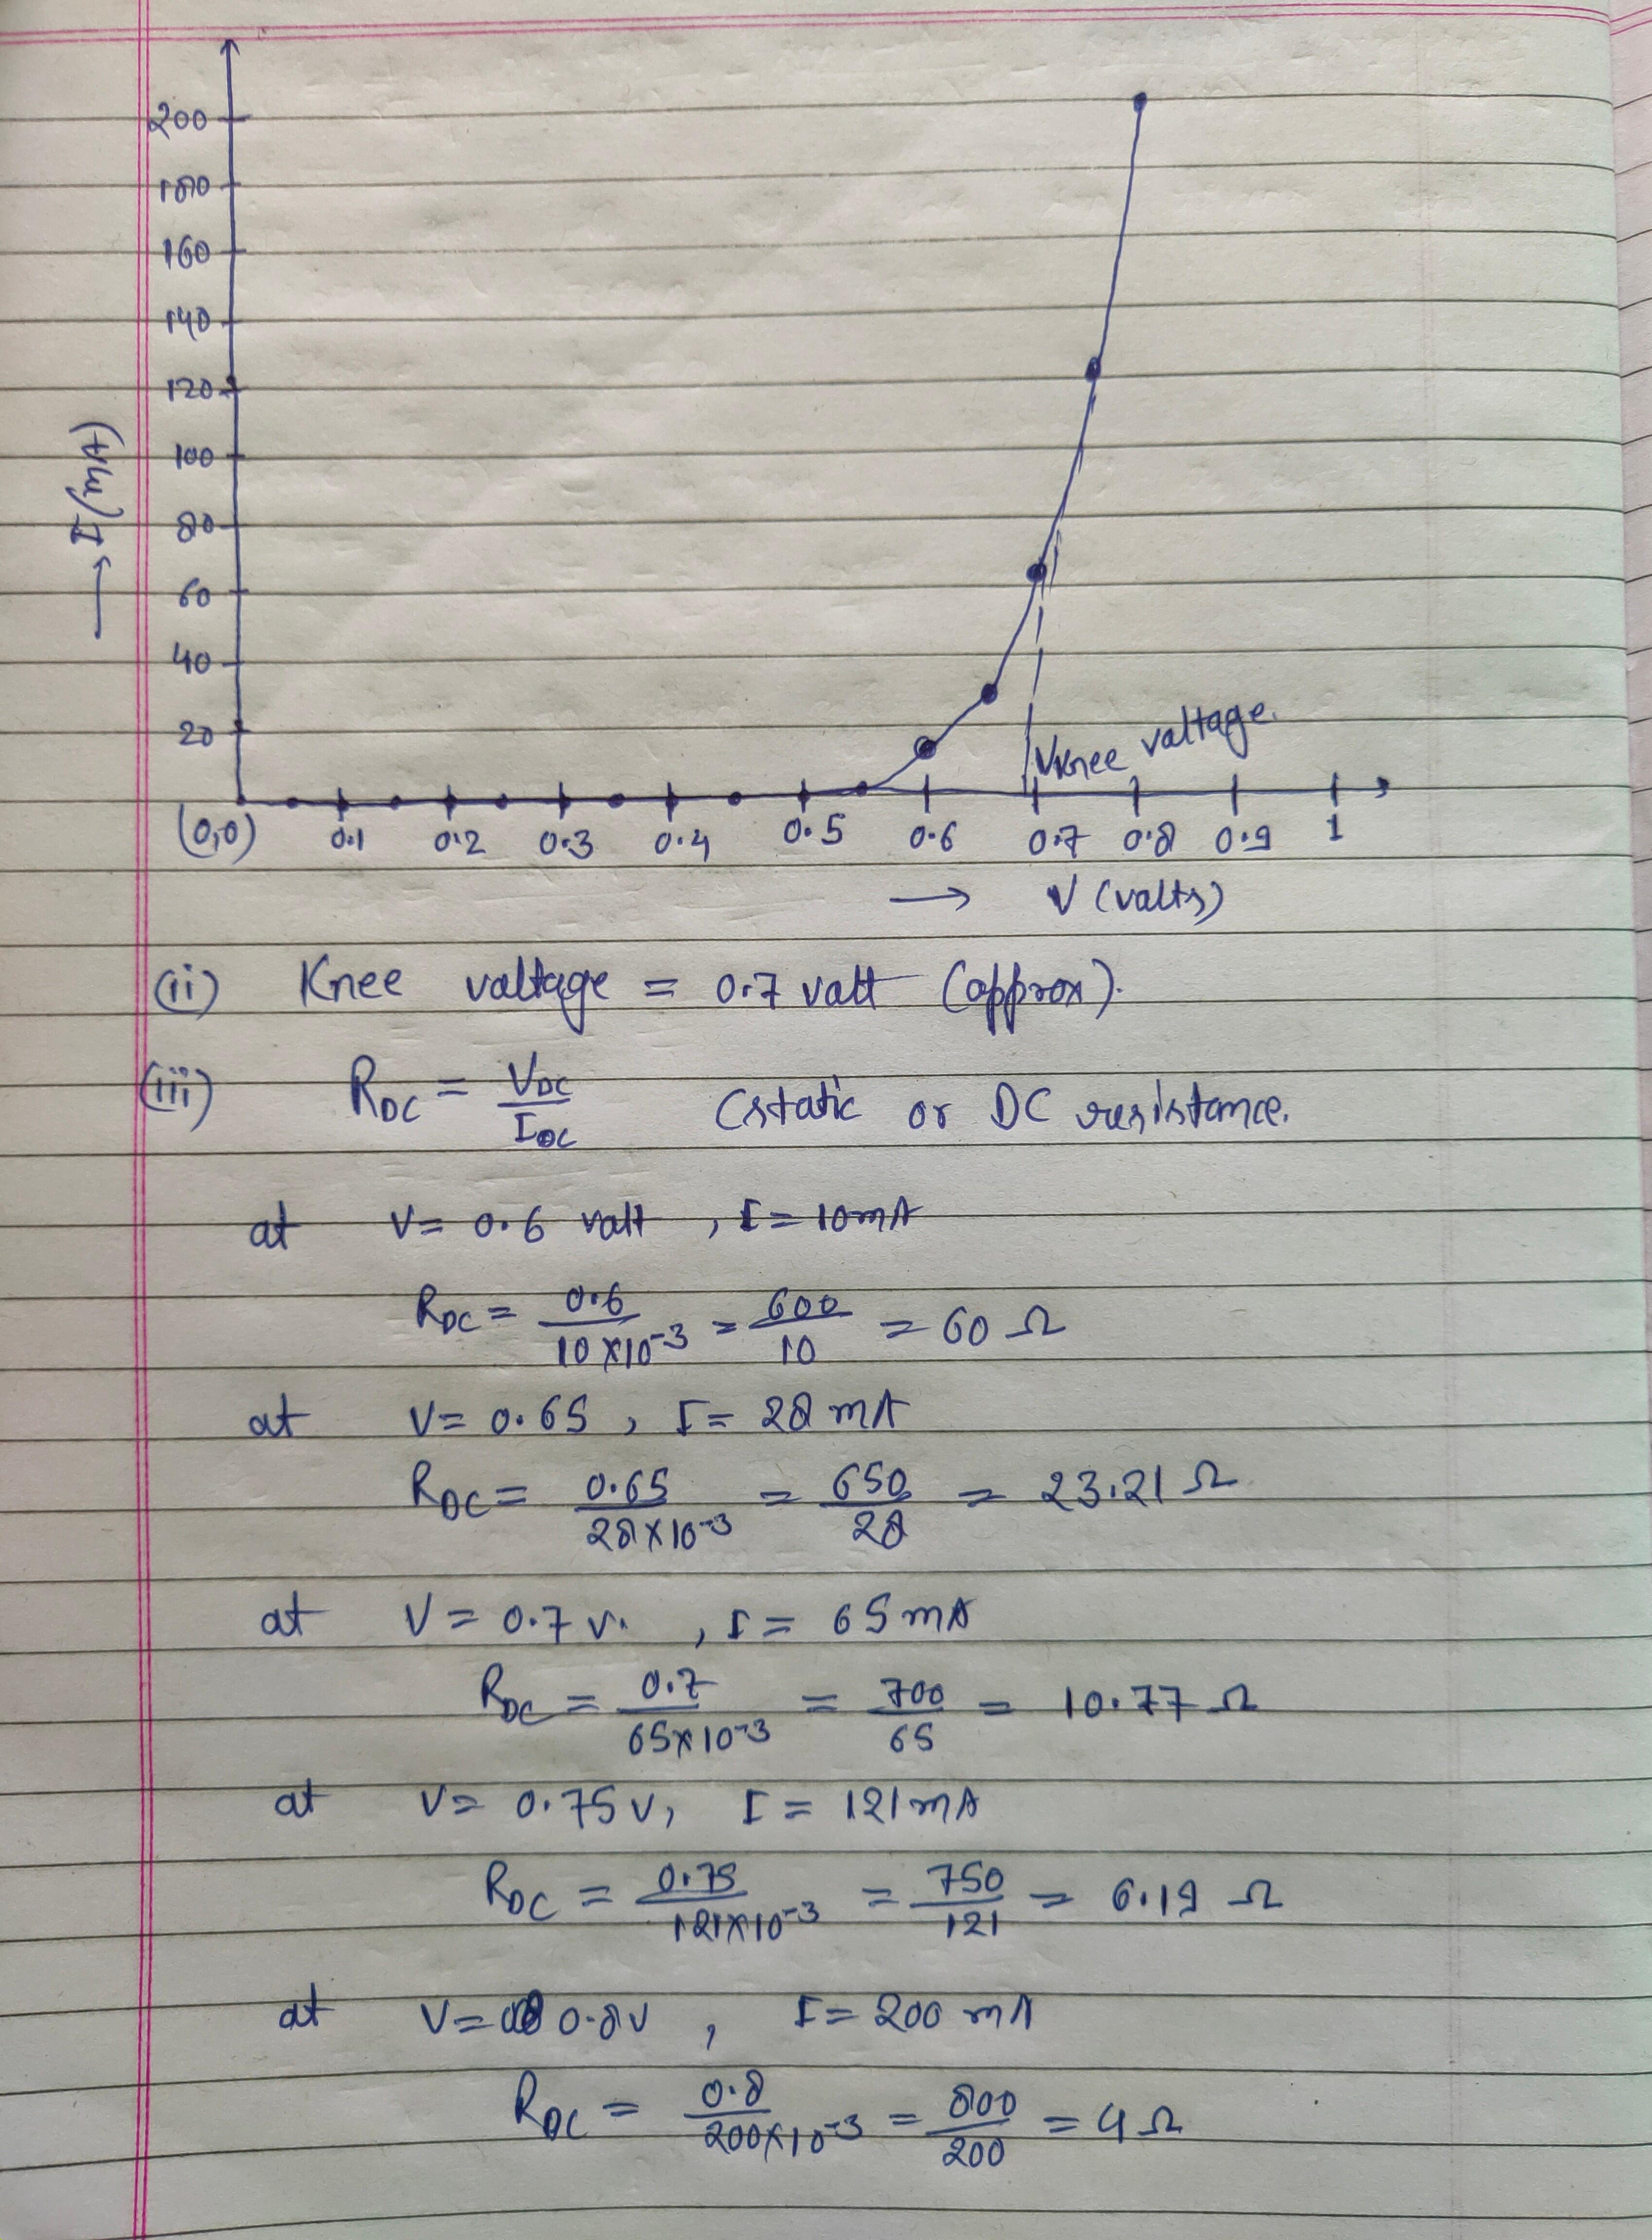 200
180
160
140
120
100
80
60
40
20
→ I (mA)
VKnee valtage.
(0,0) 0.1 0.2 0.3 0.4 0.5 0.6 0.7 0.8 0.9 1
→ V (valts)
(ii) Knee valtage = 0.7 valt (approx).
(iii) RDC = VDC/IDC (static or DC resistance.
at V= 0.6 valt , I = 10mA
RDC = 0.6/10×10⁻³ = 600/10 = 60 Ω
at V= 0.65 , I = 28 mA
RDC = 0.65/28×10⁻³ = 650/28 = 23.21 Ω
at V = 0.7 v. , I = 65 mA
RDC = 0.7/65×10⁻³ = 700/65 = 10.77 Ω
at V= 0.75 V, I = 121 mA
RDC = 0.75/121×10⁻³ = 750/121 = 6.19 Ω
at V= 0.8V , I = 200 mA
RDC = 0.8/200×10⁻³ = 800/200 = 4 Ω